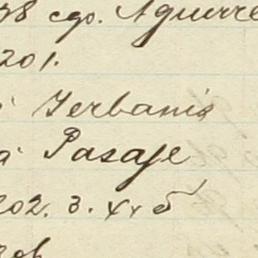 38 cgo. Aguirre
201.
a Yerbanis
á Pasaje
202. 3. 4 y 5